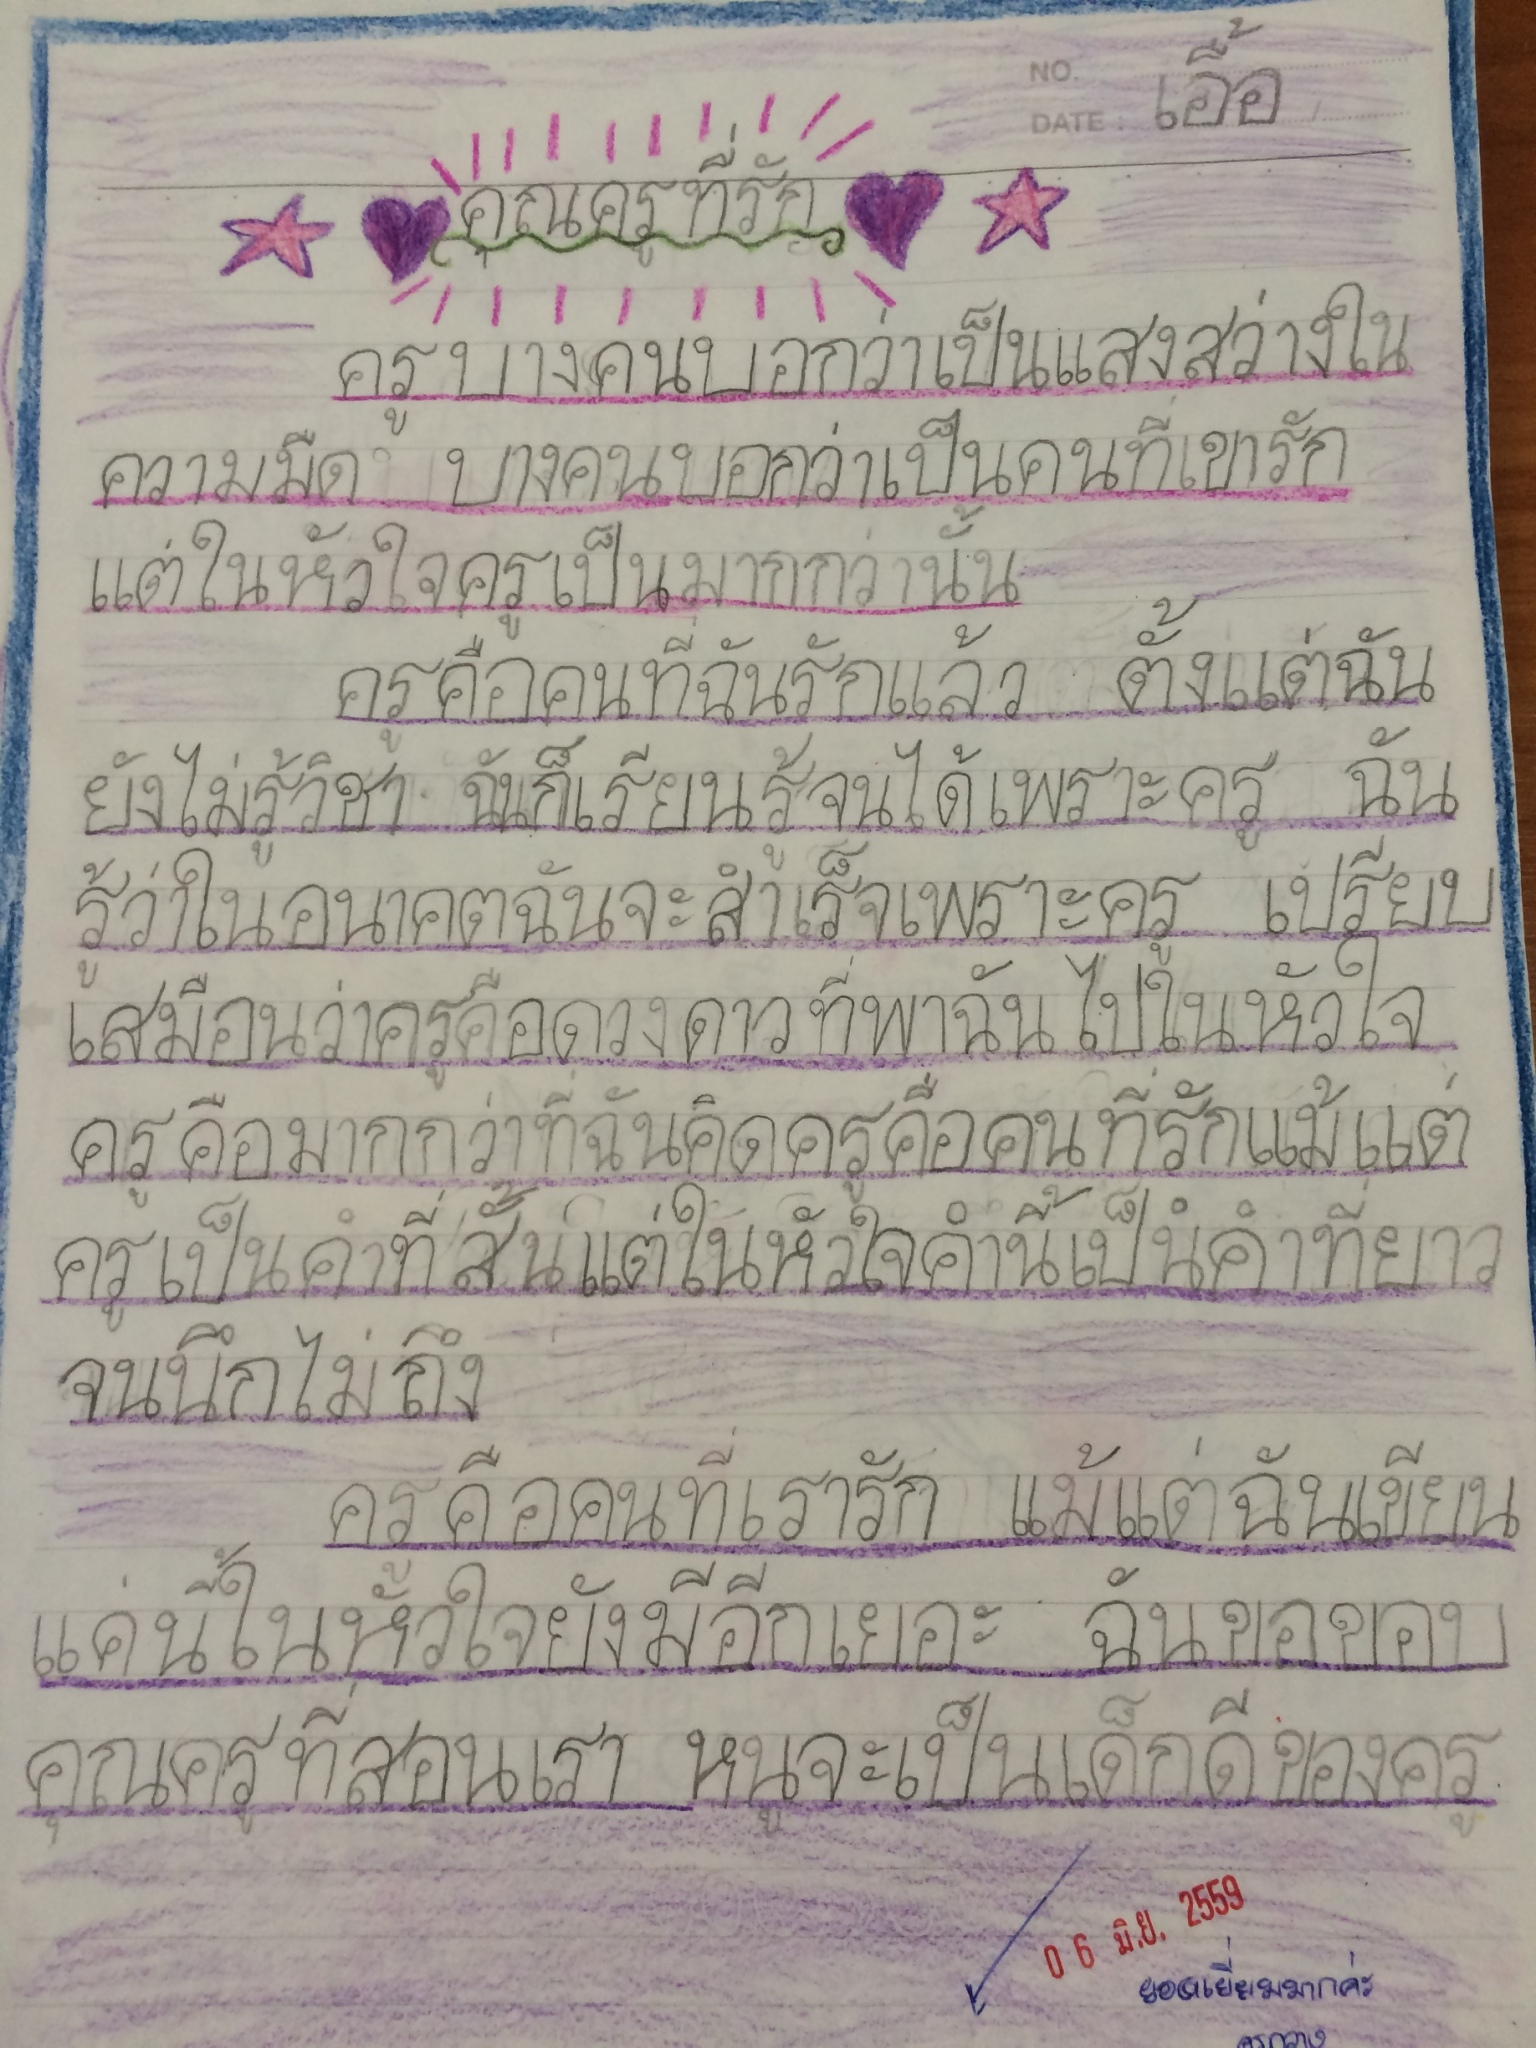 NO.
DATE : เอื้อ
คุณครูที่รัก
ครู บางคนบอกว่าเป็นแสงสว่างใน
ความมืด บางคนบอกว่าเป็นคนที่เขารัก
แต่ในหัวใจครูเป็นมากกว่านั้น
ครูคือคนที่ฉันรักแล้ว ตั้งแต่ฉัน
ยังไม่รู้วิชา ฉันก็เรียนรู้จนได้เพราะครู ฉัน
รู้ว่าในอนาคตฉันจะสำเร็จเพราะครู เปรียบ
เสมือนว่าครูคือดวงดาวที่พาฉันไปในหัวใจ
ครูคือมากกว่าที่ฉันคิดครูคือคนที่รักแม้แต่
ครูเป็นคำที่สั้นแต่ในหัวใจคำนี้เป็นคำที่ยาว
จนนึกไม่ถึง
ครูคือคนที่เรารัก แม้แต่ฉันเขียน
แค่นี้ในหัวใจยังมีอีกเยอะ ฉันขอขอบ
คุณครูที่สอนเรา หนูจะเป็นเด็กดีของครู
0 6 มิ.ย. 2559
ยอดเยี่ยมมากค่ะ